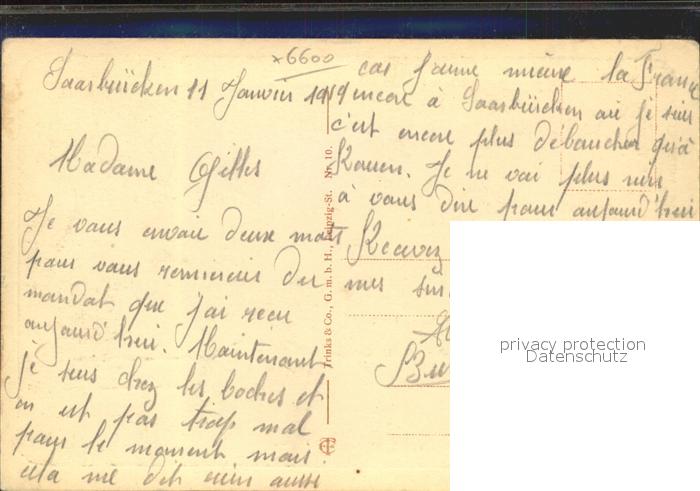 ×6600
Saarbrücken 11 Janvier 1919
Madame Gilles
Je vous envoie deux mots
pour vous remercier du
mandat que j'ai recu
aujourd'hui. Maintenant
je suis chez les boches et
on est pas trop mal
pour le moment mais
cela me dit rien aussi
car j'aime mieux la France
encore à Saarbrücken ou je suis
c'est encore plus débaucher qu'à
Rouen. Je ne vai plus rien
à vous dire pour aujourd'hui
Recevez
mes
Trinks & Co., G. m. b. H., Leipzig-St. Nr. 10.
privacy protection
Datenschutz